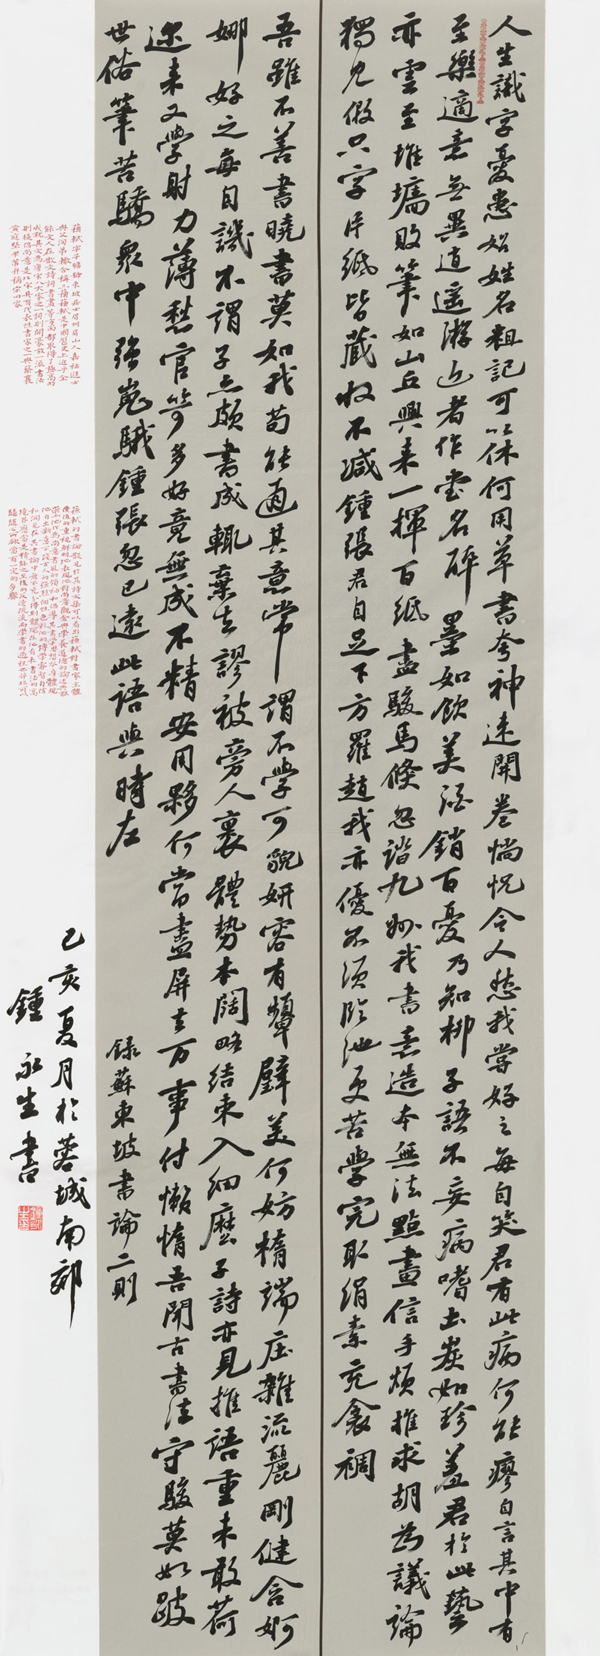 人生識字憂患始姓名粗記可以休何用草書夸神速開卷惝怳令人愁我嘗好之每自笑君有此病何能瘳自言其中有
至樂適意無異逍遥游近者作堂名醉墨如飲美酒銷百憂乃知柳子語不妄病嗜土炭如珍羞君於此藝
亦雲至堆墻敗筆如山丘興來一揮百紙盡駿馬倏忽踏九州我書意造本無法點畫信手煩推求胡為議論
獨見假只字片紙皆藏收不減鍾張君自足下方羅趙我亦優不須臨池更苦學完取絹素充衾裯
吾雖不善書曉書莫如我苟能通其意常謂不學可貌妍容有顰璧美何妨橢端莊雜流麗剛健含婀
娜好之每自譏不謂子亦頗書成輒棄去謬被旁人裹體勢本闊略結束入細麼子詩亦見推語重未敢荷
邇來又學射力薄愁官笴多好竟無成不精安用夥何當盡屏去萬事付懶惰吾聞古書法守駿莫如跛
世俗筆苦驕衆中強嵬騀鍾張忽已遠此語與時左
錄蘇東坡書論二則
蘇軾字子瞻號東坡居士眉州眉山人嘉祐進士
與父洵弟轍合稱三蘇蘇軾是中國歷史上近乎全
己亥夏月於蓉城南郊
鍾永生書